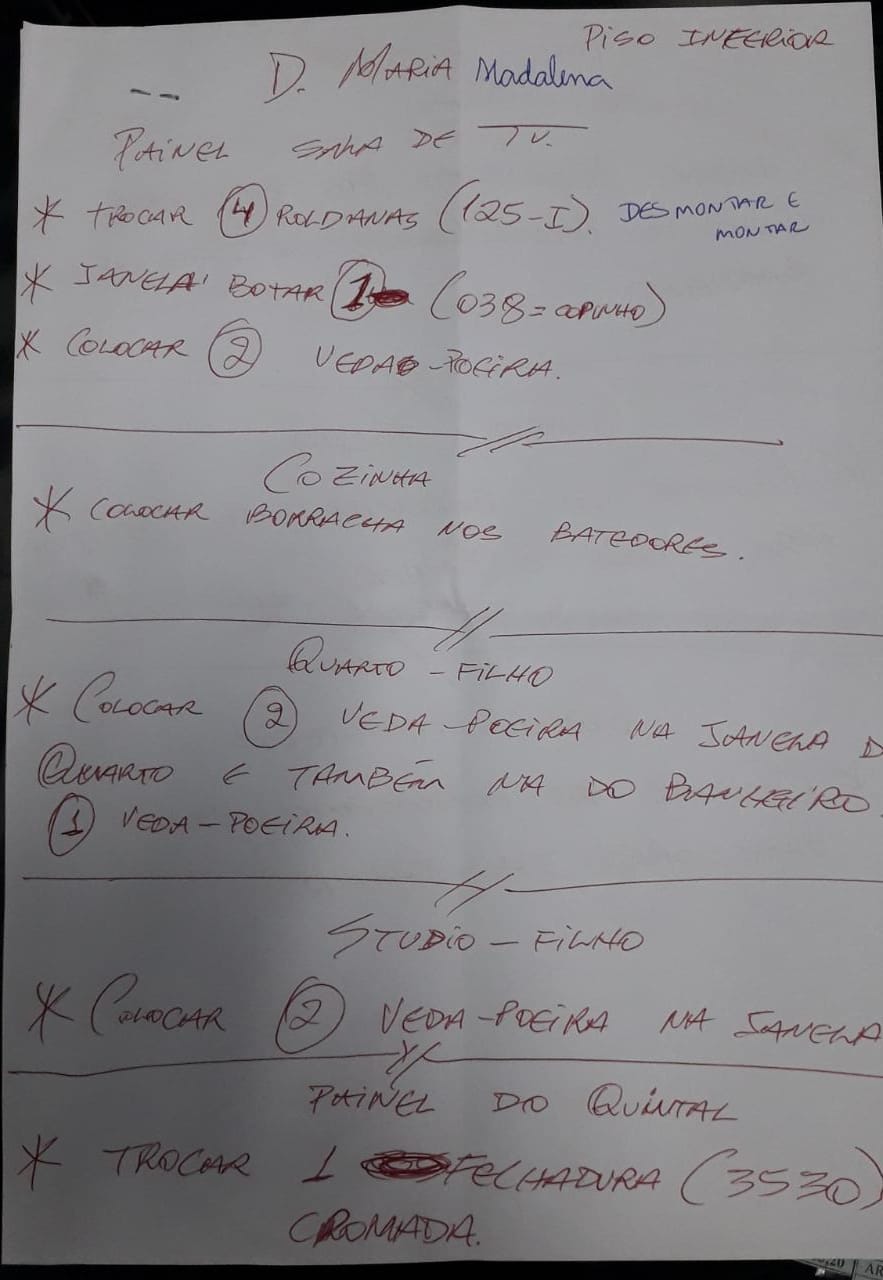 PISO INFERIOR
D. MARIA Madalena
PAINEL SALA DE TV.
* TROCAR 4 ROLDANAS (125-I). DESMONTAR E
MONTAR
* JANELA' BOTAR 1 (038=COPINHO)
* COLOCAR 2 VEDA-POEIRA.
COZINHA
* COLOCAR BORRACHA NOS BATEDORES.
QUARTO - FILHO
* COLOCAR 2 VEDA-POEIRA NA JANELA D
QUARTO E TAMBÉM NA DO BANHEIRO.
1 VEDA-POEIRA.
STUDIO - FILHO
* COLOCAR 2 VEDA-POEIRA NA JANELA
PAINEL DO QUINTAL
* TROCAR 1 FECHADURA (3530)
CROMADA.